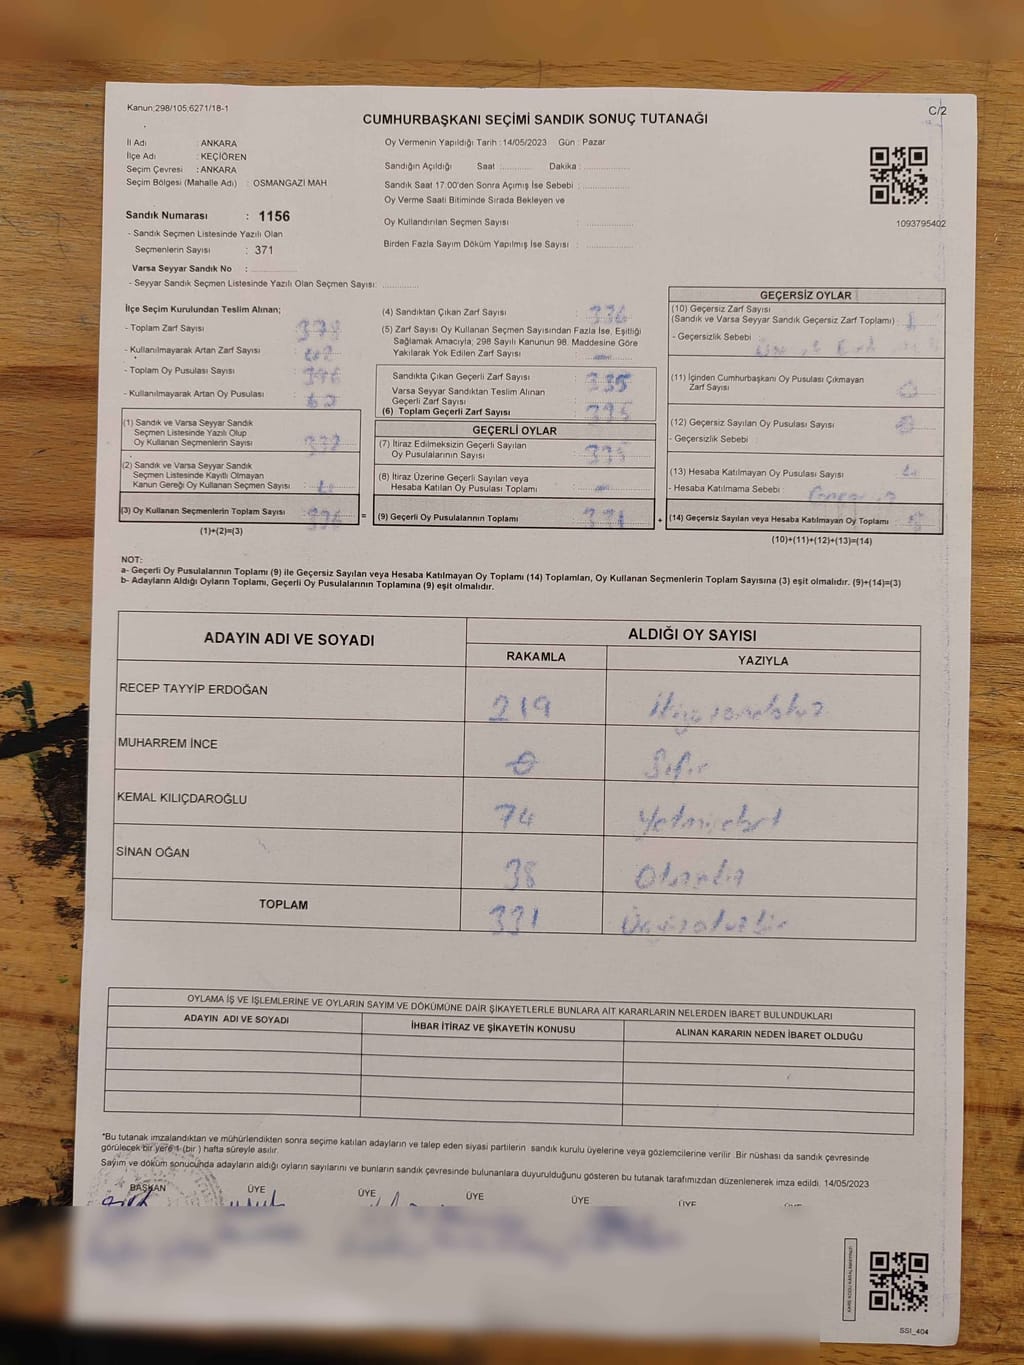 Kanun;298/105;6271/18-1
C/2
CUMHURBAŞKANI SEÇİMİ SANDIK SONUÇ TUTANAĞI
İl Adı : ANKARA
İlçe Adı : KEÇİÖREN
Seçim Çevresi : ANKARA
Seçim Bölgesi (Mahalle Adı) : OSMANGAZİ MAH
Sandık Numarası : 1156
- Sandık Seçmen Listesinde Yazılı Olan
Seçmenlerin Sayısı : 371
Varsa Seyyar Sandık No :
- Seyyar Sandık Seçmen Listesinde Yazılı Olan Seçmen Sayısı:
Oy Vermenin Yapıldığı Tarih : 14/05/2023 Gün : Pazar
Sandığın Açıldığı Saat : Dakika :
Sandık Saat 17:00'den Sonra Açımış İse Sebebi :
Oy Verme Saati Bitiminde Sırada Bekleyen ve
Oy Kullandırılan Seçmen Sayısı :
Birden Fazla Sayım Döküm Yapılmış İse Sayısı :
1093795402
İlçe Seçim Kurulundan Teslim Alınan;
- Toplam Zarf Sayısı : 378
- Kullanılmayarak Artan Zarf Sayısı : 42
- Toplam Oy Pusulası Sayısı :
- Kullanılmayarak Artan Oy Pusulası :
(1) Sandık ve Varsa Seyyar Sandık
Seçmen Listesinde Yazılı Olup
Oy Kullanan Seçmenlerin Sayısı :
(2) Sandık ve Varsa Seyyar Sandık
Seçmen Listesinde Kayıtlı Olmayan
Kanun Gereği Oy Kullanan Seçmen Sayısı :
(3) Oy Kullanan Seçmenlerin Toplam Sayısı : 336
(1)+(2)=(3)
(4) Sandıktan Çıkan Zarf Sayısı : 336
(5) Zarf Sayısı Oy Kullanan Seçmen Sayısından Fazla İse, Eşitliği
Sağlamak Amacıyla; 298 Sayılı Kanunun 98. Maddesine Göre
Yakılarak Yok Edilen Zarf Sayısı : —
Sandıkta Çıkan Geçerli Zarf Sayısı : 335
Varsa Seyyar Sandıktan Teslim Alınan
Geçerli Zarf Sayısı :
(6) Toplam Geçerli Zarf Sayısı : 335
GEÇERLİ OYLAR
(7) İtiraz Edilmeksizin Geçerli Sayılan
Oy Pusulalarının Sayısı :
(8) İtiraz Üzerine Geçerli Sayılan veya
Hesaba Katılan Oy Pusulası Toplamı : —
= (9) Geçerli Oy Pusulalarının Toplamı : 331
GEÇERSİZ OYLAR
(10) Geçersiz Zarf Sayısı
(Sandık ve Varsa Seyyar Sandık Geçersiz Zarf Toplamı) : 1
- Geçersizlik Sebebi
(11) İçinden Cumhurbaşkanı Oy Pusulası Çıkmayan
Zarf Sayısı : 0
(12) Geçersiz Sayılan Oy Pusulası Sayısı : 0
- Geçersizlik Sebebi
(13) Hesaba Katılmayan Oy Pusulası Sayısı : 4
- Hesaba Katılmama Sebebi :
+ (14) Geçersiz Sayılan veya Hesaba Katılmayan Oy Toplamı : 5
(10)+(11)+(12)+(13)=(14)
NOT:
a- Geçerli Oy Pusulalarının Toplamı (9) ile Geçersiz Sayılan veya Hesaba Katılmayan Oy Toplamı (14) Toplamları, Oy Kullanan Seçmenlerin Toplam Sayısına (3) eşit olmalıdır. (9)+(14)=(3)
b- Adayların Aldığı Oyların Toplamı, Geçerli Oy Pusulalarının Toplamına (9) eşit olmalıdır.
ADAYIN ADI VE SOYADI ALDIĞI OY SAYISI
RAKAMLA YAZIYLA
RECEP TAYYİP ERDOĞAN 219 İkiyüzondokuz
MUHARREM İNCE 0 Sıfır
KEMAL KILIÇDAROĞLU 74 Yetmişdört
SİNAN OĞAN 38 Otuzsekiz
TOPLAM 331 Üçyüzotuzbir
OYLAMA İŞ VE İŞLEMLERİNE VE OYLARIN SAYIM VE DÖKÜMÜNE DAİR ŞİKAYETLERLE BUNLARA AİT KARARLARIN NELERDEN İBARET BULUNDUKLARI
ADAYIN ADI VE SOYADI İHBAR İTİRAZ VE ŞİKAYETİN KONUSU ALINAN KARARIN NEDEN İBARET OLDUĞU
*Bu tutanak imzalandıktan ve mühürlendikten sonra seçime katılan adayların ve talep eden siyasi partilerin sandık kurulu üyelerine veya gözlemcilerine verilir .Bir nüshası da sandık çevresinde
görülecek bir yere 1 (bir ) hafta süreyle asılır.
Sayım ve döküm sonucunda adayların aldığı oyların sayılarını ve bunların sandık çevresinde bulunanlara duyurulduğunu gösteren bu tutanak tarafımızdan düzenlenerek imza edildi. 14/05/2023
BAŞKAN ÜYE ÜYE ÜYE ÜYE ÜYE ÜYE
SSI_404